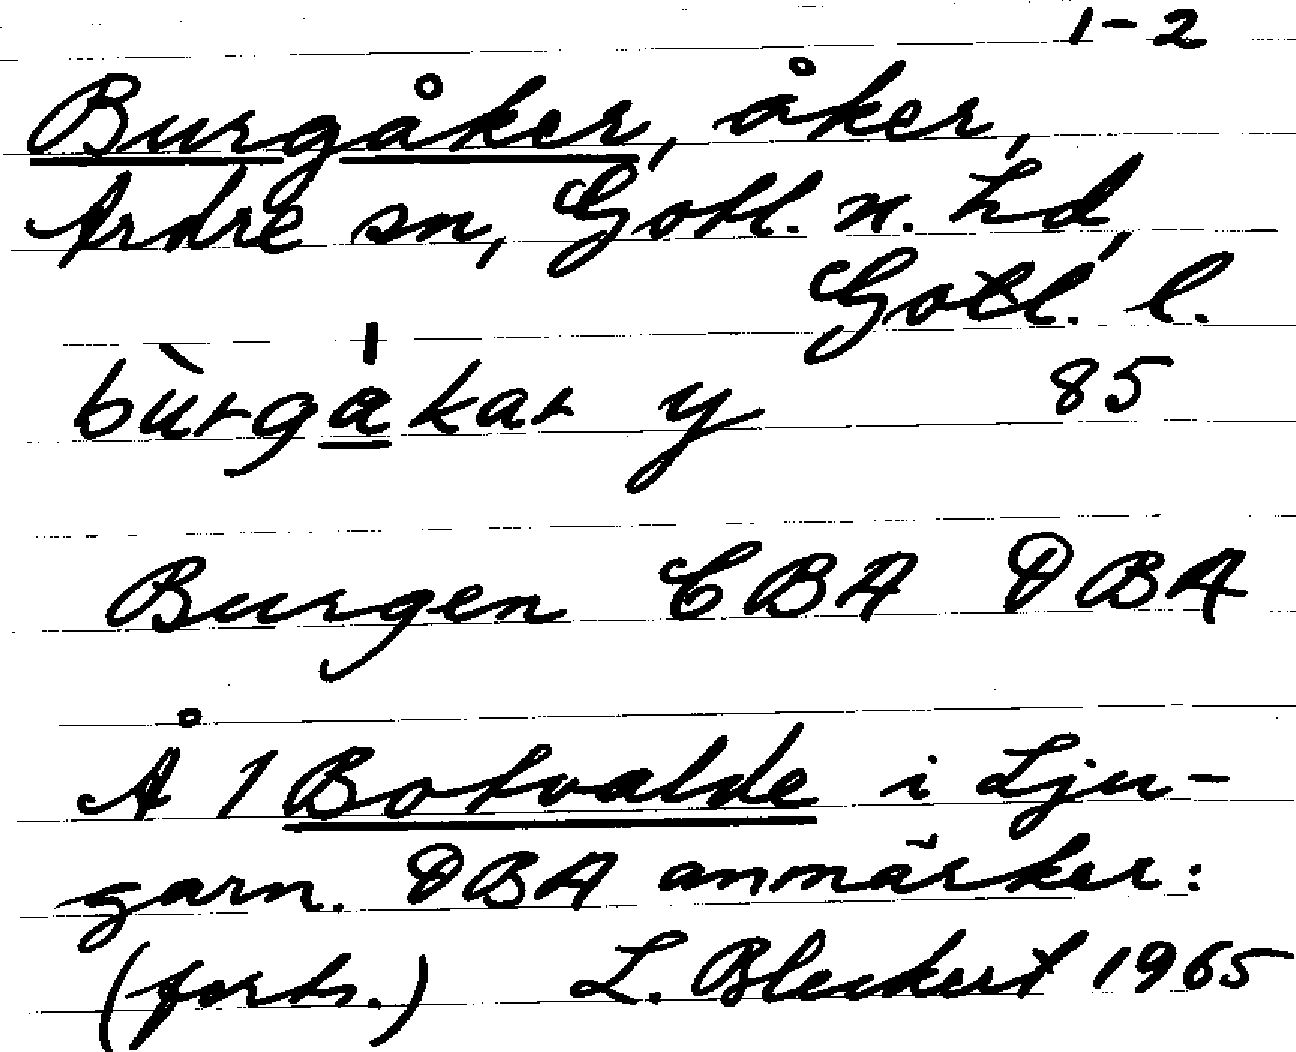 1-2
Burgåker, åker,
Ardre sn, Gotl. n. hd,
Gotl. l.
bùrgákar y 85
Burgen CBA DBA
Å 1 Botvalde i Lju-
garn. DBA anmärker:
(forts.) L. Bleckert 1965